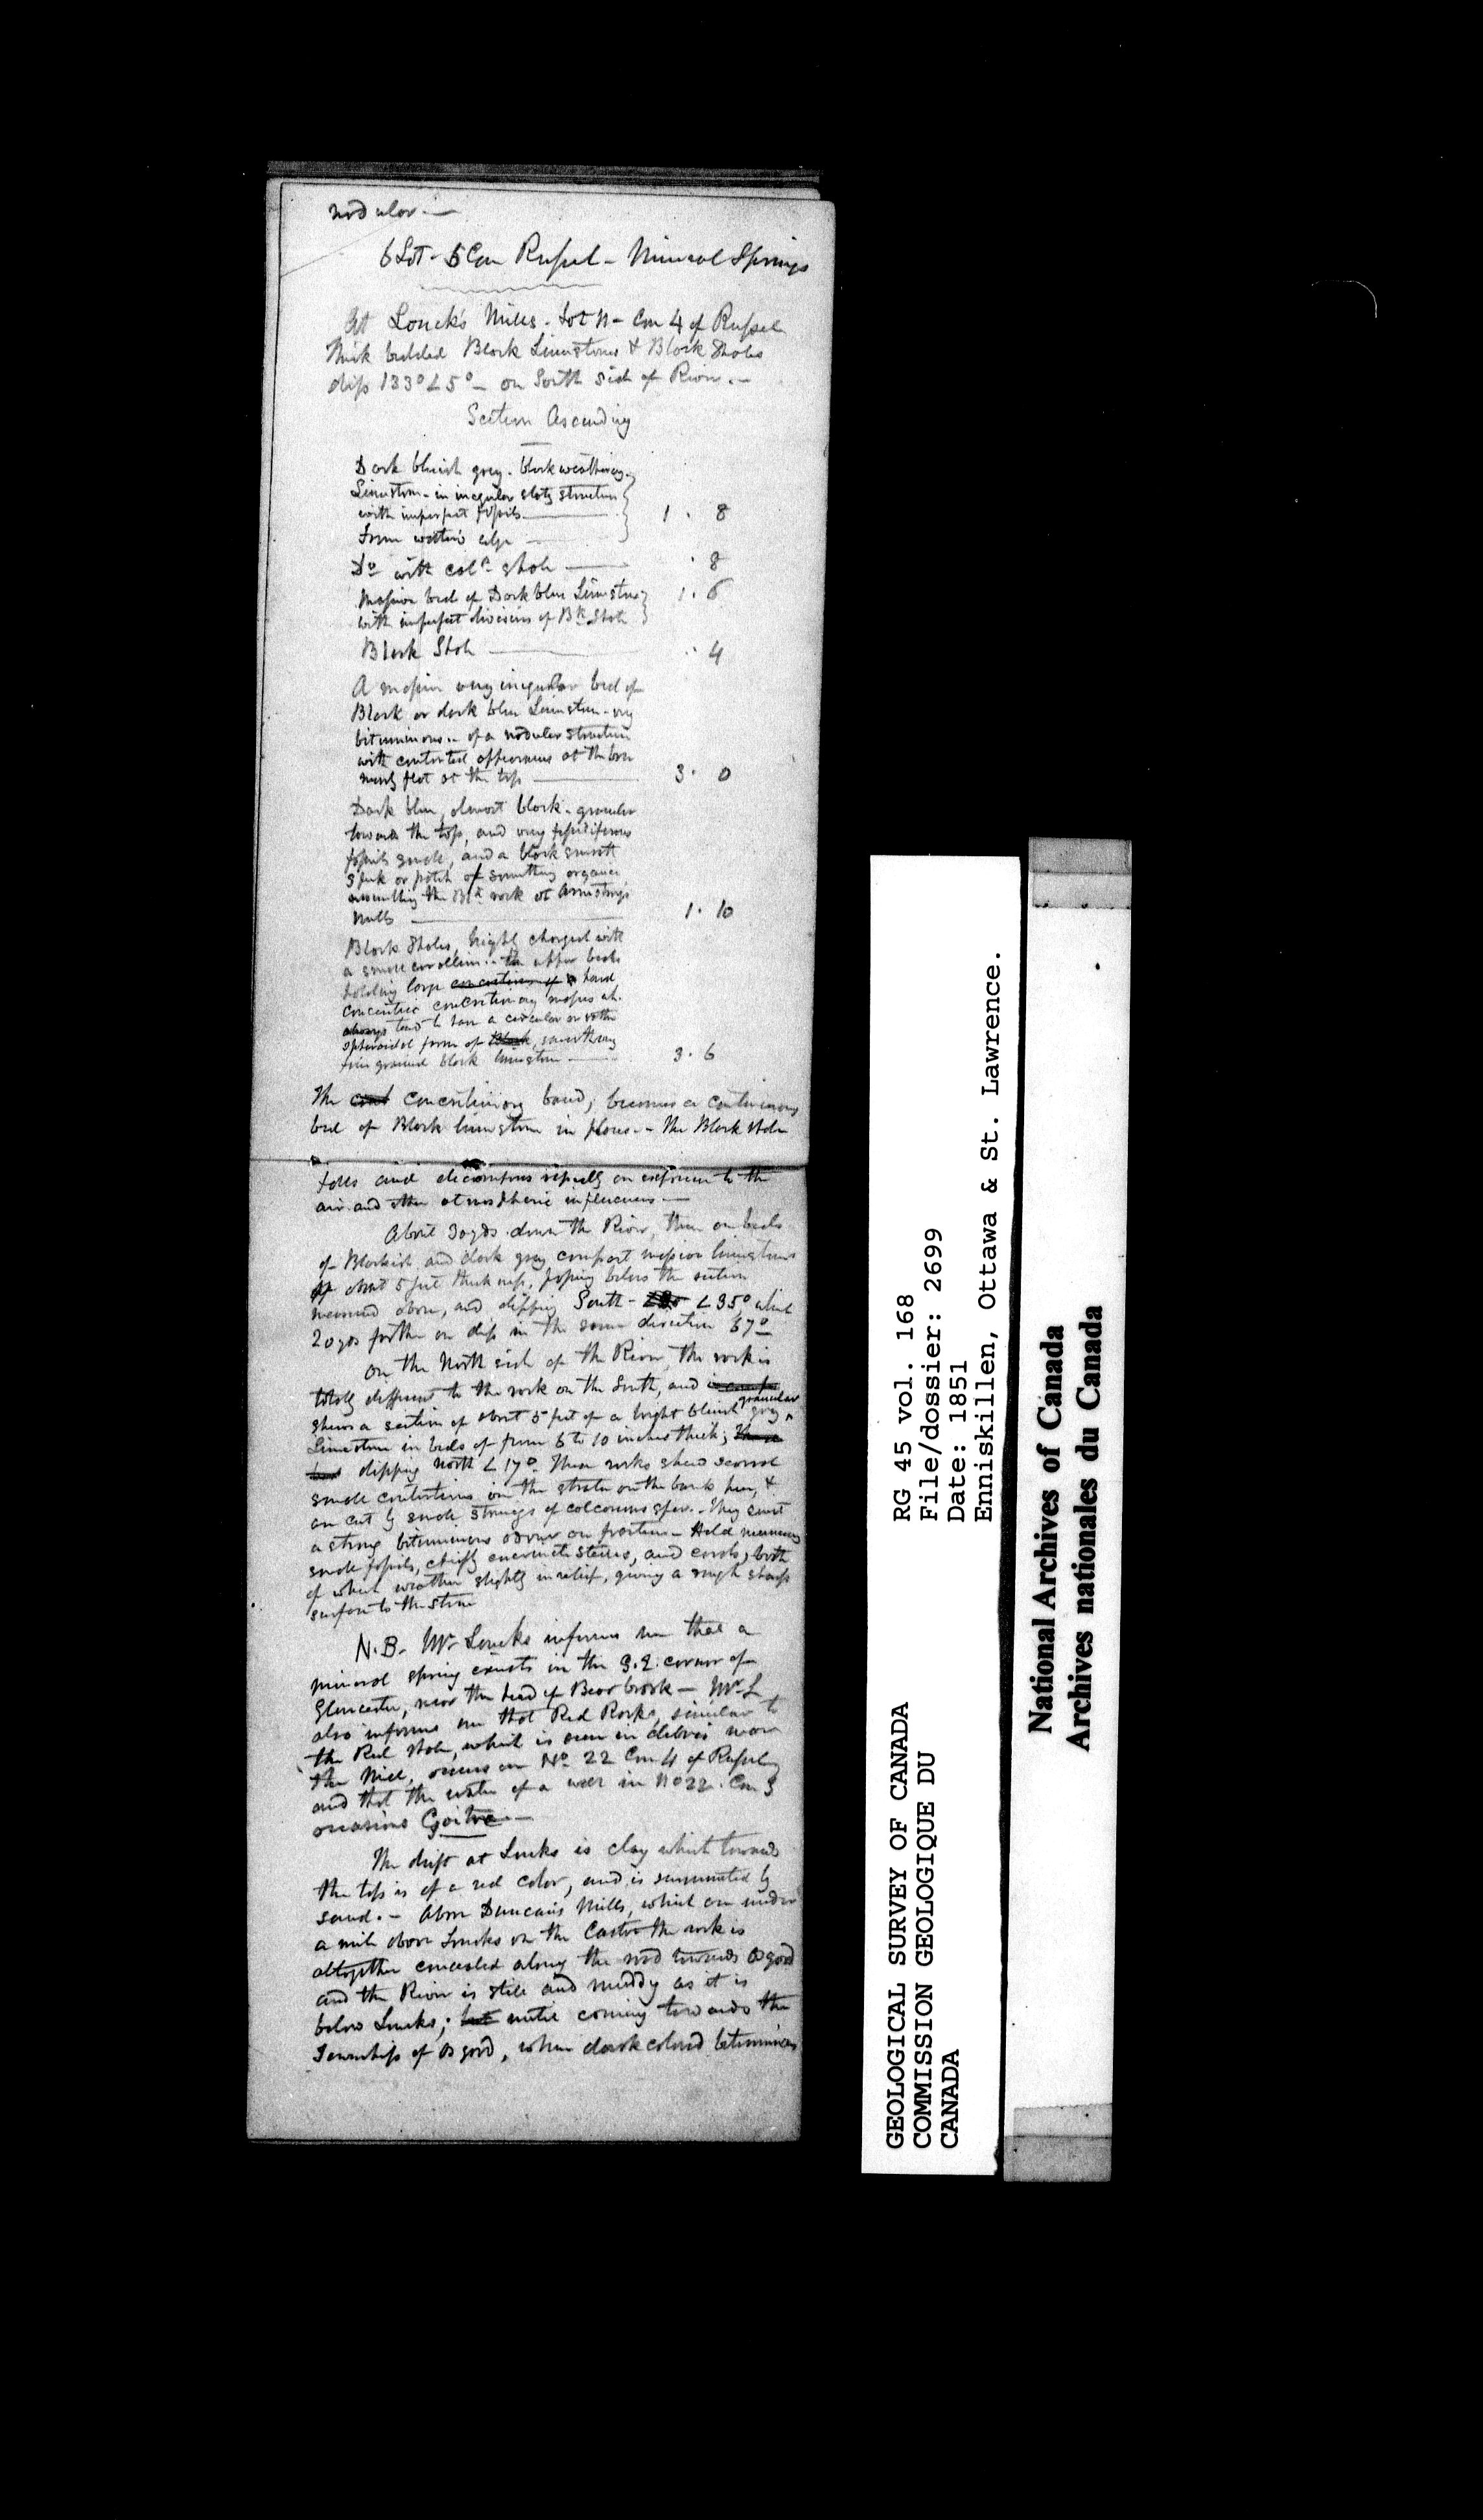 nodular —
6 Lot - 5 Con Russel - Mineral Springs
At Louck's Mills - Lot 11 - Con 4 of Russel
Thick bedded Black Limestones & Black Shales
dip 133° ∠ 5° - on South side of River. -
Section Ascending
Dark bluish grey - black weathering
Limestone - in irregular slaty structure
with imperfect fossils
from water's edge — 1 . 8
Do with calcs shale — . 8
Massive bed of Dark blue Limestone
with imperfect divisions of Bk Shale 1 . 6
Black Shale — . . 4
A massive very irregular bed of
Black or dark blue Limestone - very
bituminous - of a nodular structure
with contorted appearance at the base
nearly flat at the top — 3 . 0
Dark blue, almost black - granular
towards the top, and very fossiliferous
fossils small, and a black smooth
speck or patch of something organic
resembling the Blk rock at Armstrong's
Mills — 1 . 10
Black Shales, highly charged with
a small coralline - the upper beds
holding large concretions of hard
concentric concretionary masses wh.
always tend to have a circular or rather
spheroidal form of black, smooth
fine grained black limestone — 3 . 6
The concretionary band, becomes a continuous
bed of Black limestone in places - The Black shale
falls and decomposes rapidly on exposure to the
air and other atmospheric influences —
About 30 yds down the River, there are beds
of Blackish and dark grey compact massive limestones
of about 5 feet thickness, passing below the section
measured above, and dipping South - ∠ 35° while
20 yds further on dip in the same direction 67° -
On the North side of the River, the rock is
totally different to the rock on the South, and
shews a section of about 5 feet of a bright bluish grey granular
Limestone in beds of from 6 to 10 inches thick;
dipping North ∠ 17°. These rocks shew several
small contortions in the strata on the bank here, &
are cut by small strings of calcareous spar. - They emit
a strong bituminous odour on fracture - Hold numerous
small fossils, chiefly encrinite stems, and corals, both
of which weather slightly in relief, giving a rough sharp
surface to the stone
N.B. - Mr Loucks informs me that a
mineral spring exists in the S.E. corner of
Gloucester, near the head of Bear brook — Mr L
also informs me that Red Rocks, similar to
the Red shale, which is seen in debris near
the Mill, occurs on No 22 Con 4 of Russel,
and that the water of a well in No 22. Con 3
occasions Goitre —
The drift at Loucks is clay which towards
the top is of a red color, and is surmounted by
sand. - Above Duncan's Mills, which are under
a mile above Loucks on the Castor the rock is
altogether concealed along the road towards Osgood
and the River is still and muddy as it is
below Loucks; but until coming towards the
Township of Osgood, where dark colored bituminous
GEOLOGICAL SURVEY OF CANADA
COMMISSION GEOLOGIQUE DU
CANADA
RG 45 vol. 168
File/dossier: 2699
Date: 1851
Enniskillen, Ottawa & St. Lawrence.
National Archives of Canada
Archives nationales du Canada